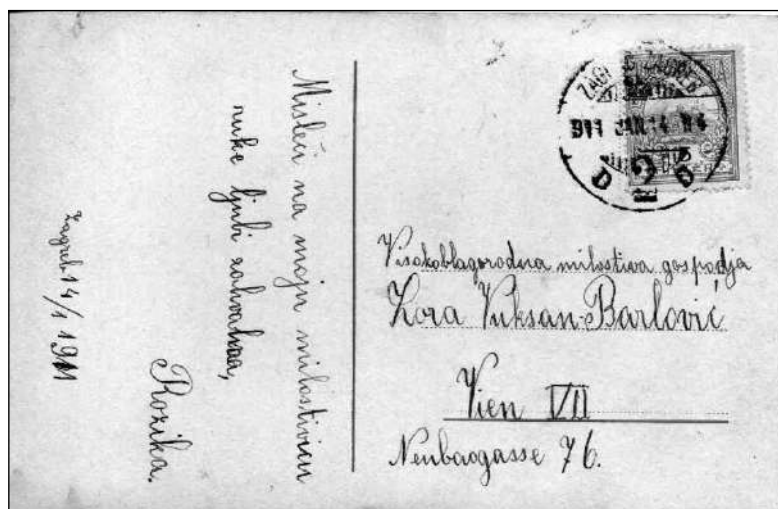 Misleći na moju milostivicu
ruke ljubi zahvalna,
Rozika.
Zagreb 14/1 1911
911 JAN. 14
Visokoblagorodna milostiva gospodja
Zora Vuksan-Barlović
Vien VII
Neubaogasse 76.